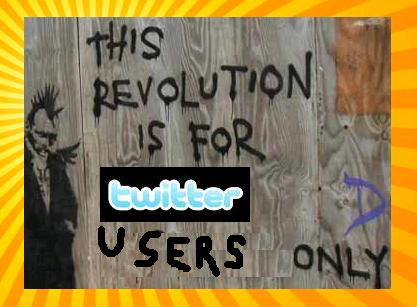 THIS
REVOLUTION
IS FOR
twitter
USERS ONLY
D